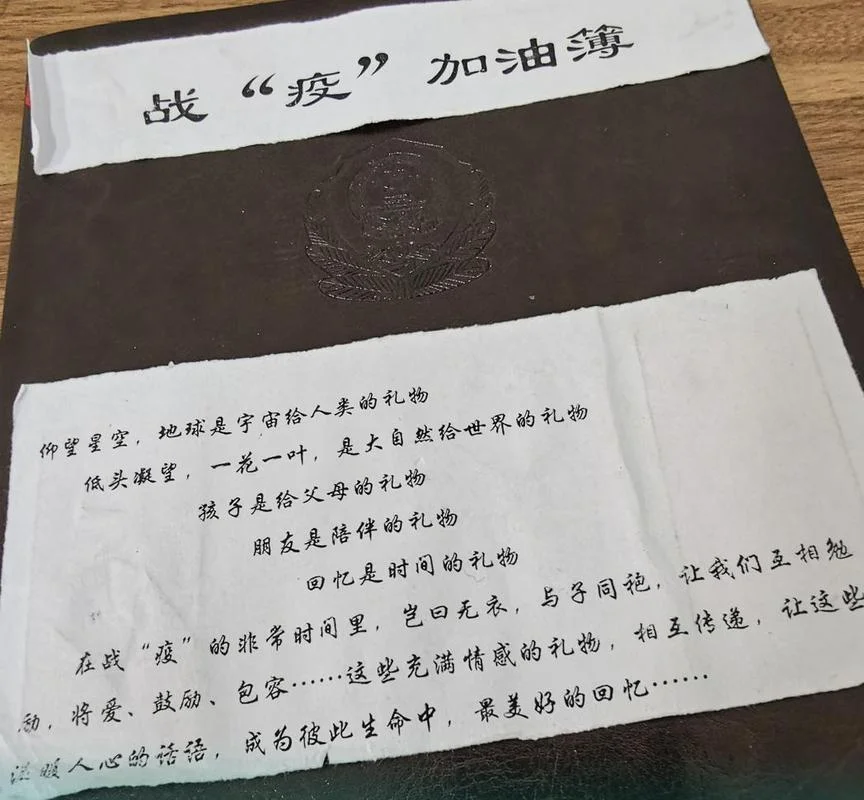 战“疫”加油簿
仰望星空，地球是宇宙给人类的礼物
低头凝望，一花一叶，是大自然给世界的礼物
孩子是给父母的礼物
朋友是陪伴的礼物
回忆是时间的礼物
在战“疫”的非常时间里，岂曰无衣，与子同袍，让我们互相勉
励，将爱、鼓励、包容……这些充满情感的礼物，相互传递，让这些
温暖人心的话语，成为彼此生命中，最美好的回忆……